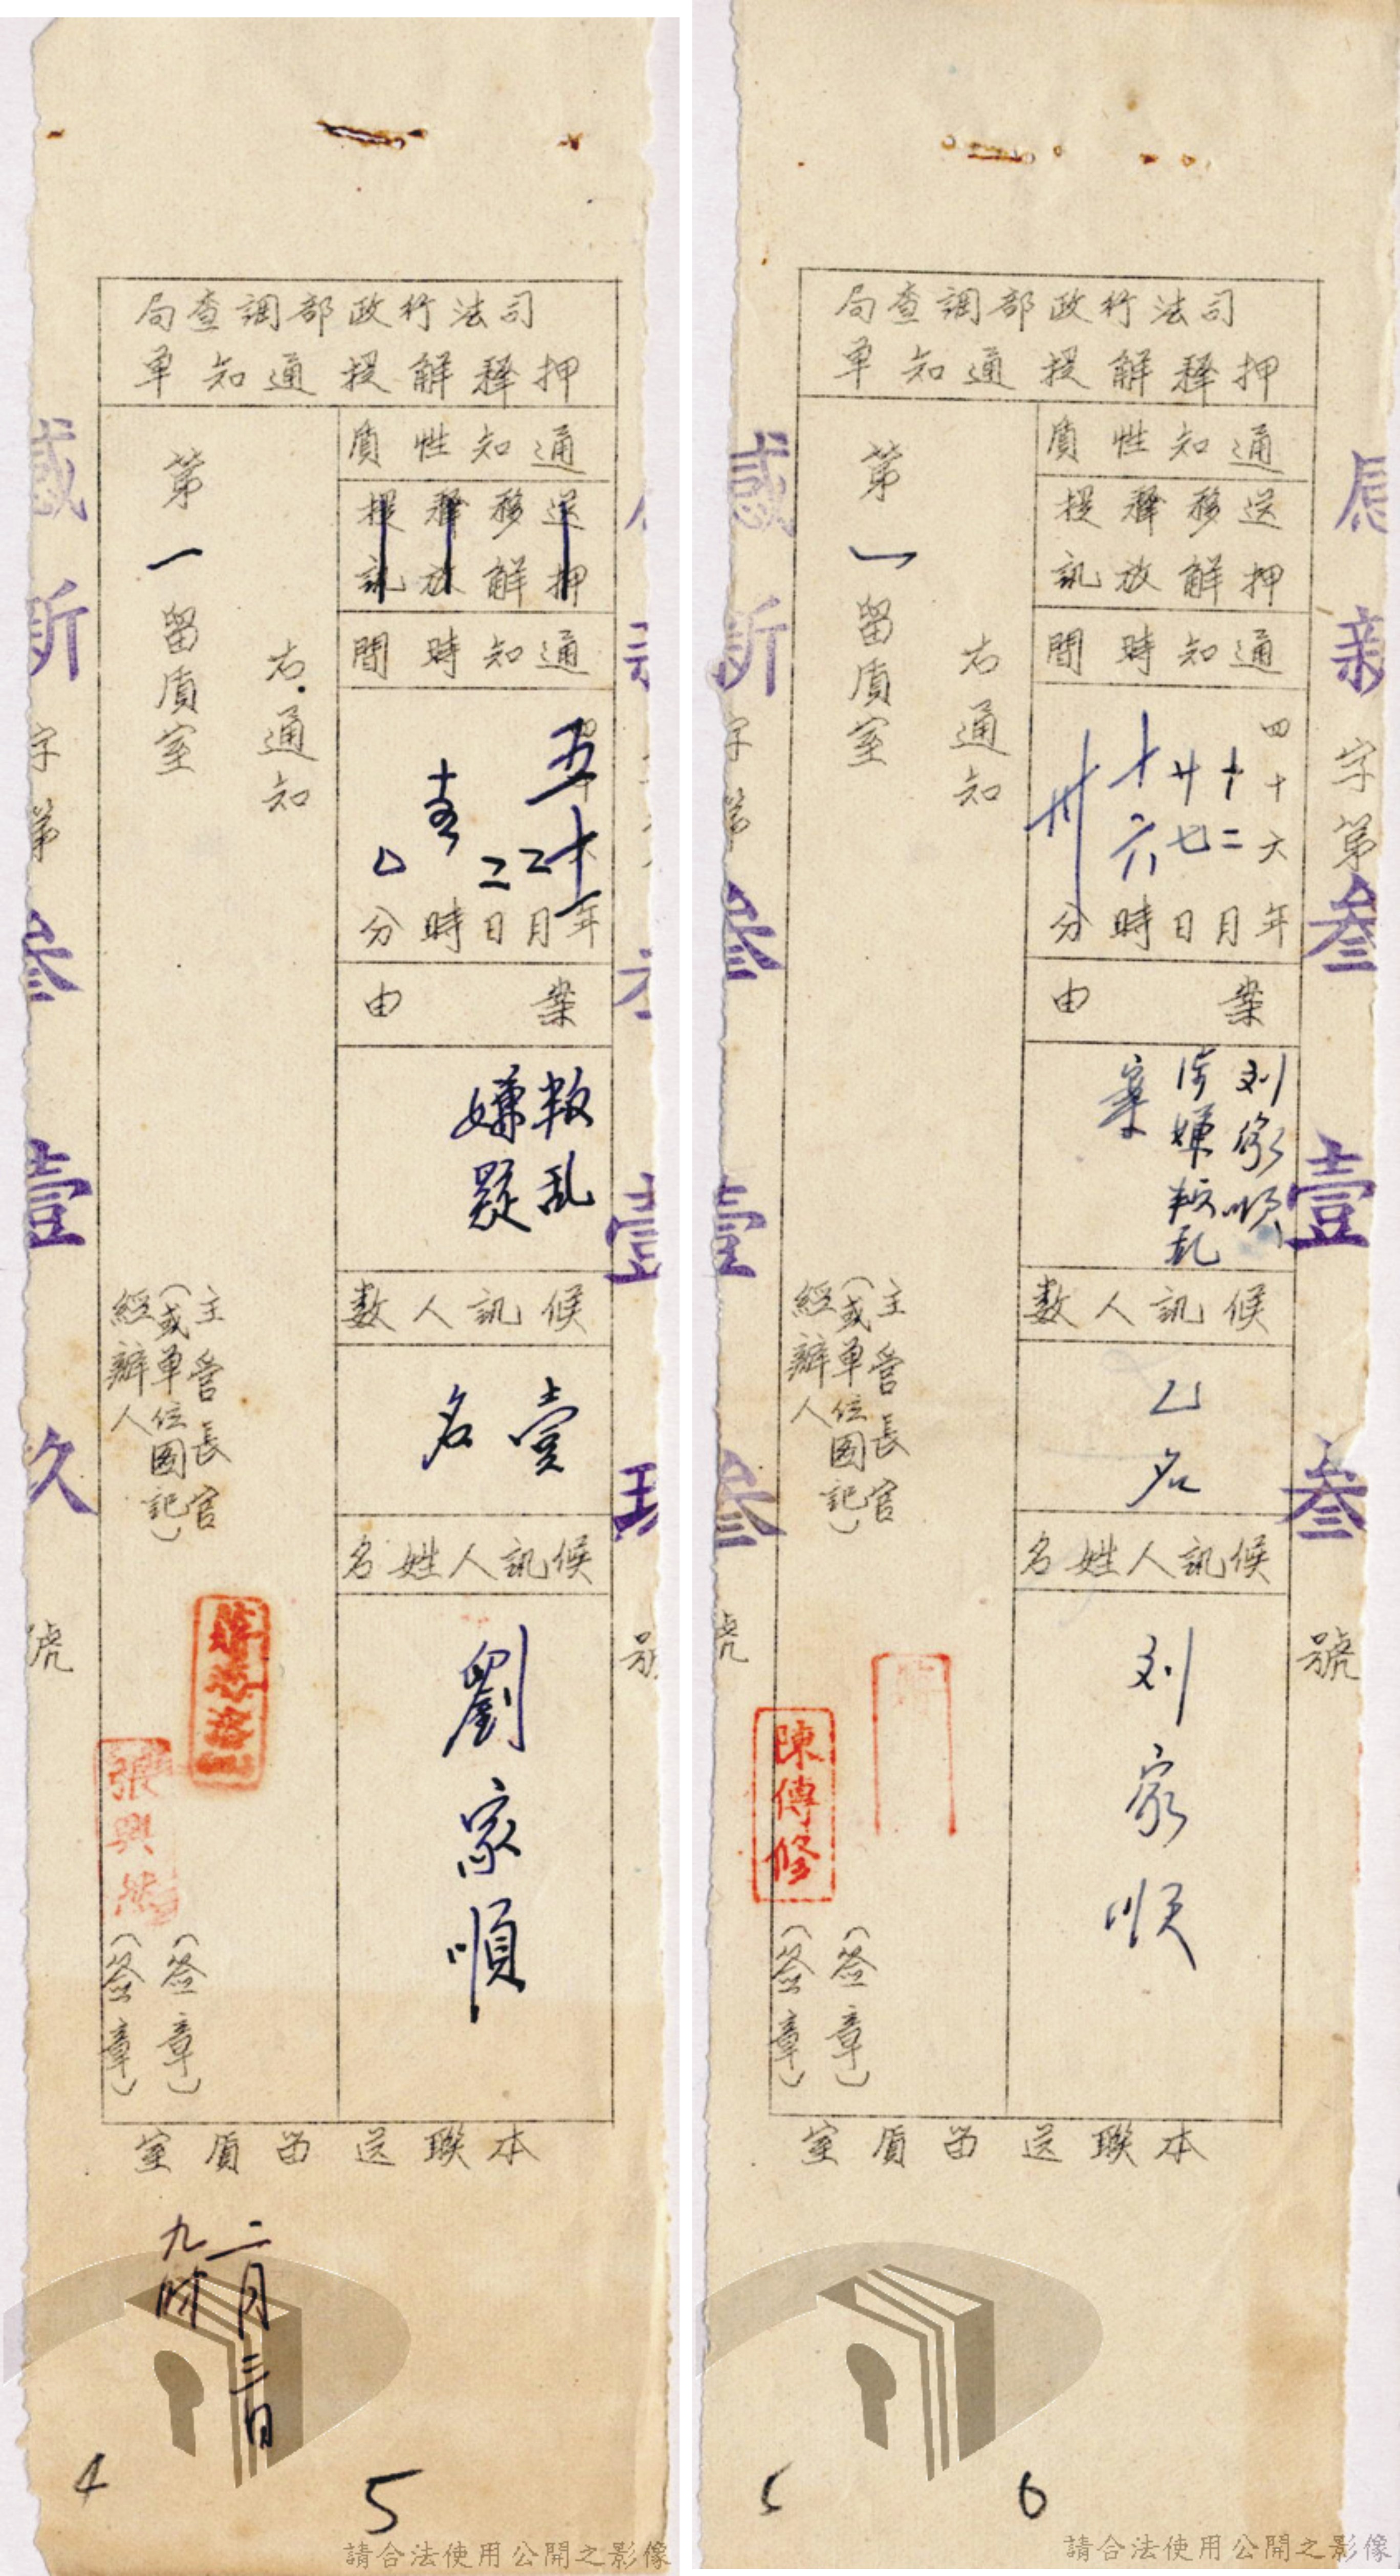 司法行政部調查局
押釋解提通知單
通知性質
送押
移解
釋放
提訊
通知時間
五十年
二月
二日
時
分
案由
叛乱
嫌疑
候訊人數
壹
名
候訊人姓名
劉家順
右通知
第一留質室
主管長官
(或單位圖記)
經辦人
張興
(簽章)
(簽章)
本聯送留質室
二月三日
九時
4
5
字第
壹
久
號
請合法使用公開之影像
司法行政部調查局
押釋解提通知單
通知性質
送押
移解
釋放
提訊
通知時間
四十六年
十二月
廿七日
十六時
卅分
案由
刘家順
涉嫌叛乱
案
候訊人數
乙名
候訊人姓名
刘家順
右通知
第一留質室
主管長官
(或單位圖記)
經辦人
陳傳修
(簽章)
(簽章)
本聯送留質室
字第叁壹叁號
6
請合法使用公開之影像